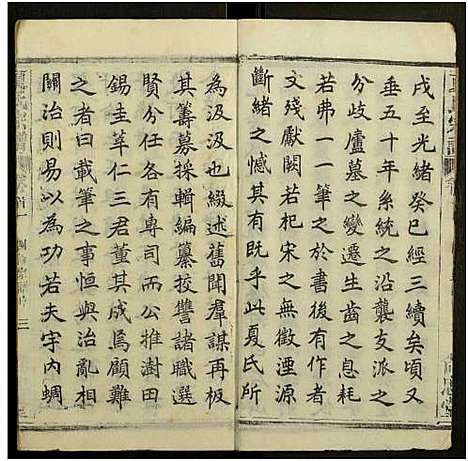 戌至光緒癸巳經三續矣頃又
垂五十年系統之沿襲支派之
分歧廬墓之變遷生齒之息耗
若弗一一筆於書後有作者
文殘獻闕若杞宋之無徵湮源
斷緒之憾其有既乎此夏氏所
為汲汲也綴述舊聞羣謀再板
其籌募採輯編纂校讐諸職選
賢分任各有專司公推澍田
錫圭萃仁三君董其成焉顧難
之者曰載筆之事恒與治亂相
關治則易以為功若夫宇內蜩